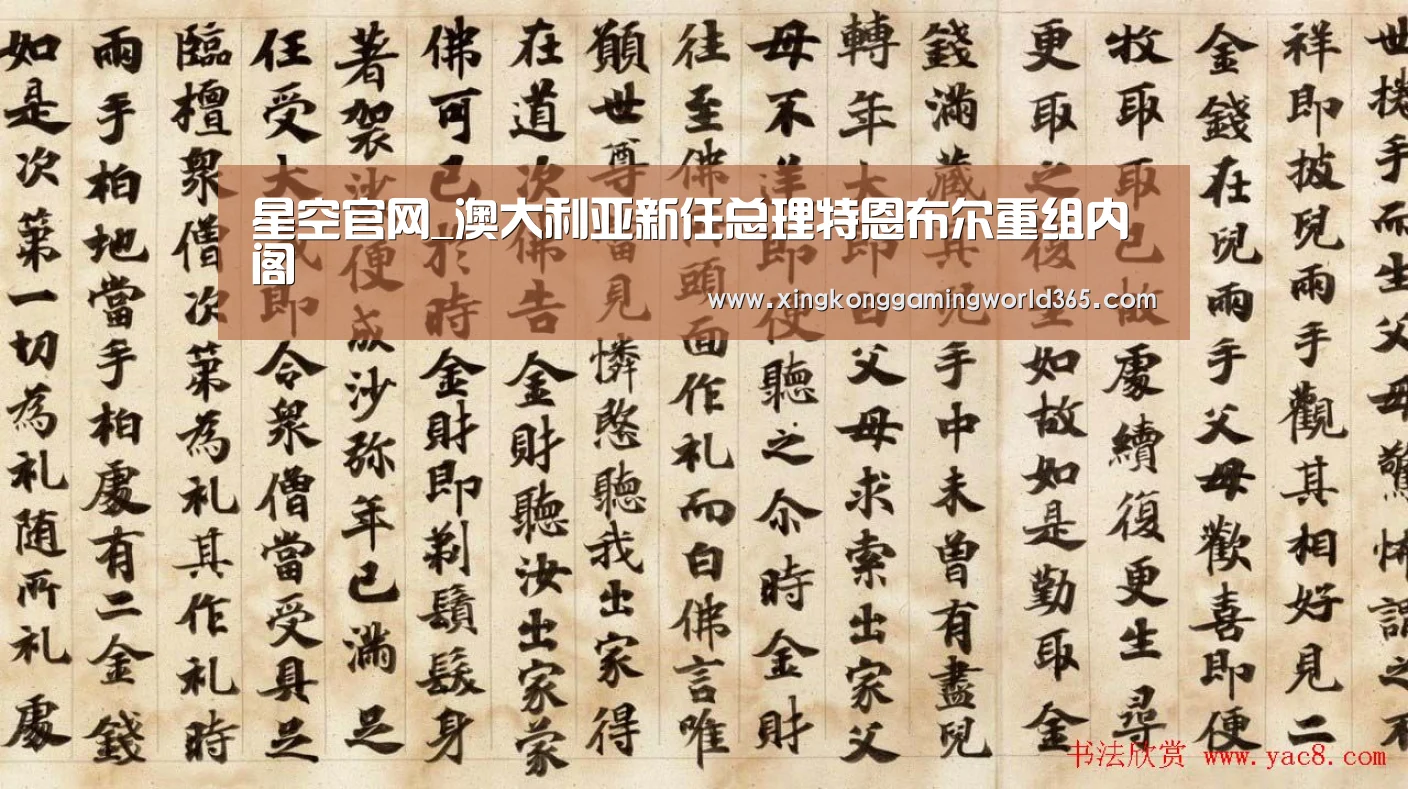 星空官网_澳大利亚新任总理特恩布尔重组内
阁
www.xingkonggamingworld365.com
世手而生父母驚怖謂之不
祥即披兒兩手觀其相好見二
金錢在兒兩手父母歡喜即便
牧取取已故處續復更生尋
更取之復生如故如是勤取金
錢滿藏其兒手中未曾有盡兒
轉年大即白父母求索出家父
母不逆即便聽之尒時金財
往至佛所頭面作礼而白佛言唯
願世尊當見憐愍聽我出家得
在道次佛告金財聽汝出家蒙
佛可已於時金財即剃鬚髮身
著袈沙便成沙弥年已滿足
任受大戒即令衆僧當受具足
臨檀衆僧次苐為礼其作礼時
兩手柏地當手柏處有二金錢
如是次苐一切為礼随所礼處
书法欣赏 www.yac8.com